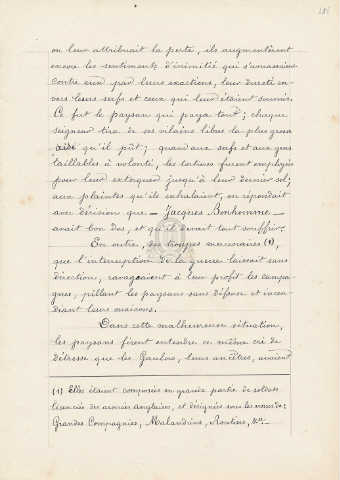 on leur attribuait la perte, ils augmentèrent
encore les sentiments d'inimitié qui s'amassaient
contre eux par leurs exactions, leur dureté en-
vers leurs serfs et ceux qui leur étaient soumis.
Ce fut le paysan qui paya tout ; chaque
seigneur tira de ses vilains le plus gros
aide qu'il pût ; quant aux serfs et aux gens
taillables à volonté, les tortures furent employées
pour leur extorquer jusqu'à leur dernier sol ;
aux plaintes qu'ils exhalaient, on répondait
avec dérision que — Jacques Bonhomme —
avait bon dos, et qu'il devait tout souffrir.
En outre, des troupes mercenaires (1),
que l'interruption de la guerre laissait sans
direction, ravageaient à leur profit les campa-
gnes, pillant les paysans sans défense et incen-
diant leurs maisons.
Dans cette malheureuse situation,
les paysans firent entendre ce même cri de
détresse que les Gaulois, leurs ancêtres, avaient
(1) Elles étaient composées en grande partie de soldats
licenciés des armées anglaises, et désignées sous les noms de :
Grandes Compagnies, Malandrins, Routiers, &c.—